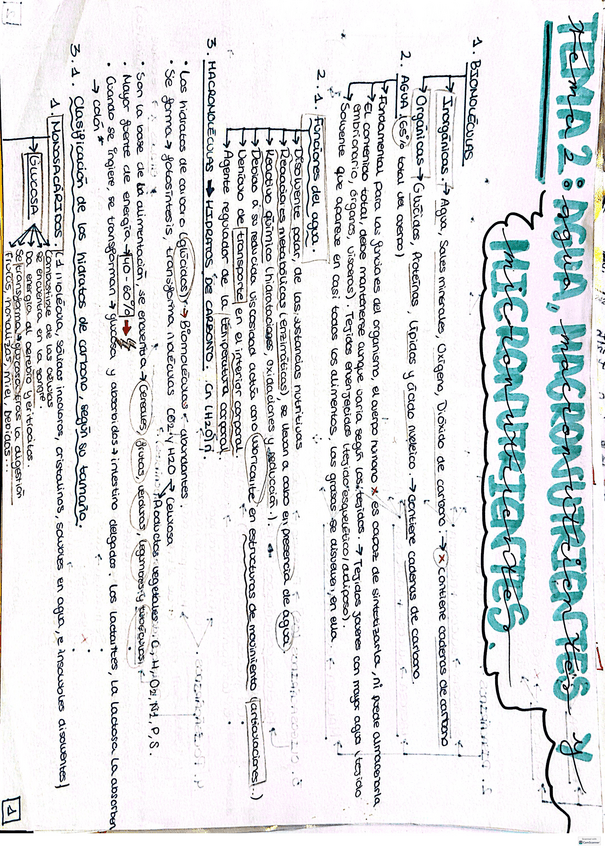 TEMA 2: AGUA, MACRONUTRIENTES Y
MICRONUTRIENTES.
1. BIOMOLÉCULAS
→ Inorgánicas → Agua, Sales minerales, Oxígeno, Dióxido de carbono. → x contiene cadenas de carbono
→ Orgánicas → Glúcidos, Proteínas, Lípidos y Ácido nucleico. → contiene cadenas de carbono.
2. AGUA (65% total del cuerpo)
→ Fundamental para las funciones del organismo, el cuerpo humano x es capaz de sintetizarla, ni puede almacenarla
→ El contenido total debe mantenerse aunque varía según los tejidos. → Tejidos jovenes con mayor agua (tejido
embrionario, órganos, vísceras). Tejidos envejecidos (tejido esquelético/adiposo).
→ Solvente que aparece en casi todos los alimentos, las grasas se disuelven en ella.
2.1 Funciones del agua.
→ Disolvente polar, de las sustancias nutritivas
→ Reacciones metabólicas (enzimáticas), se llevan a cabo en presencia de agua.
→ Reactivo químico (hidrataciones, oxidaciones y
→ Debido a su reducida viscosidad actúa como lubricante en estructuras de movimiento (articulaciones..)
→ Denivao de transporte en el interior corporal
→ Agente regulador de la temperatura corporal
3. MACROMOLÉCULAS → HIDRATOS DE CARBONO. Cn(H2O)n
• Los hidratos de carbono (glúcidos) → Biomoléculas + abundantes.
• Se forma → fotosíntesis, transforma moléculas CO2 y H2O → Celulosa
→ Productos vegetales: C, H, O2, N2, P, S.
• Son la base de la alimentación se encuentra → Cereales, frutas, verduras, legumbres y
• Mayor fuente de energía → 40-60%
• Cuando se ingiere, se transforman → glucosa y absorbidos → intestino delgado. Los lactantes, la lactosa la absorben
→ colon*
3.1. Clasificación de los hidratos de carbono, según su tamaño.
1 MONOSACÁRIDOS. [1 molécula, sólidos incoloros, cristalinos, solubles en agua, e insolubles disolventes]
→ GLUCOSA
Combustible de las células
se encuentra en la sangre
Da energía al cerebro y eritrocitos.
Se transforma → glucosa tras la digestión
Frutas, hortalizas, miel, bebidas...
1